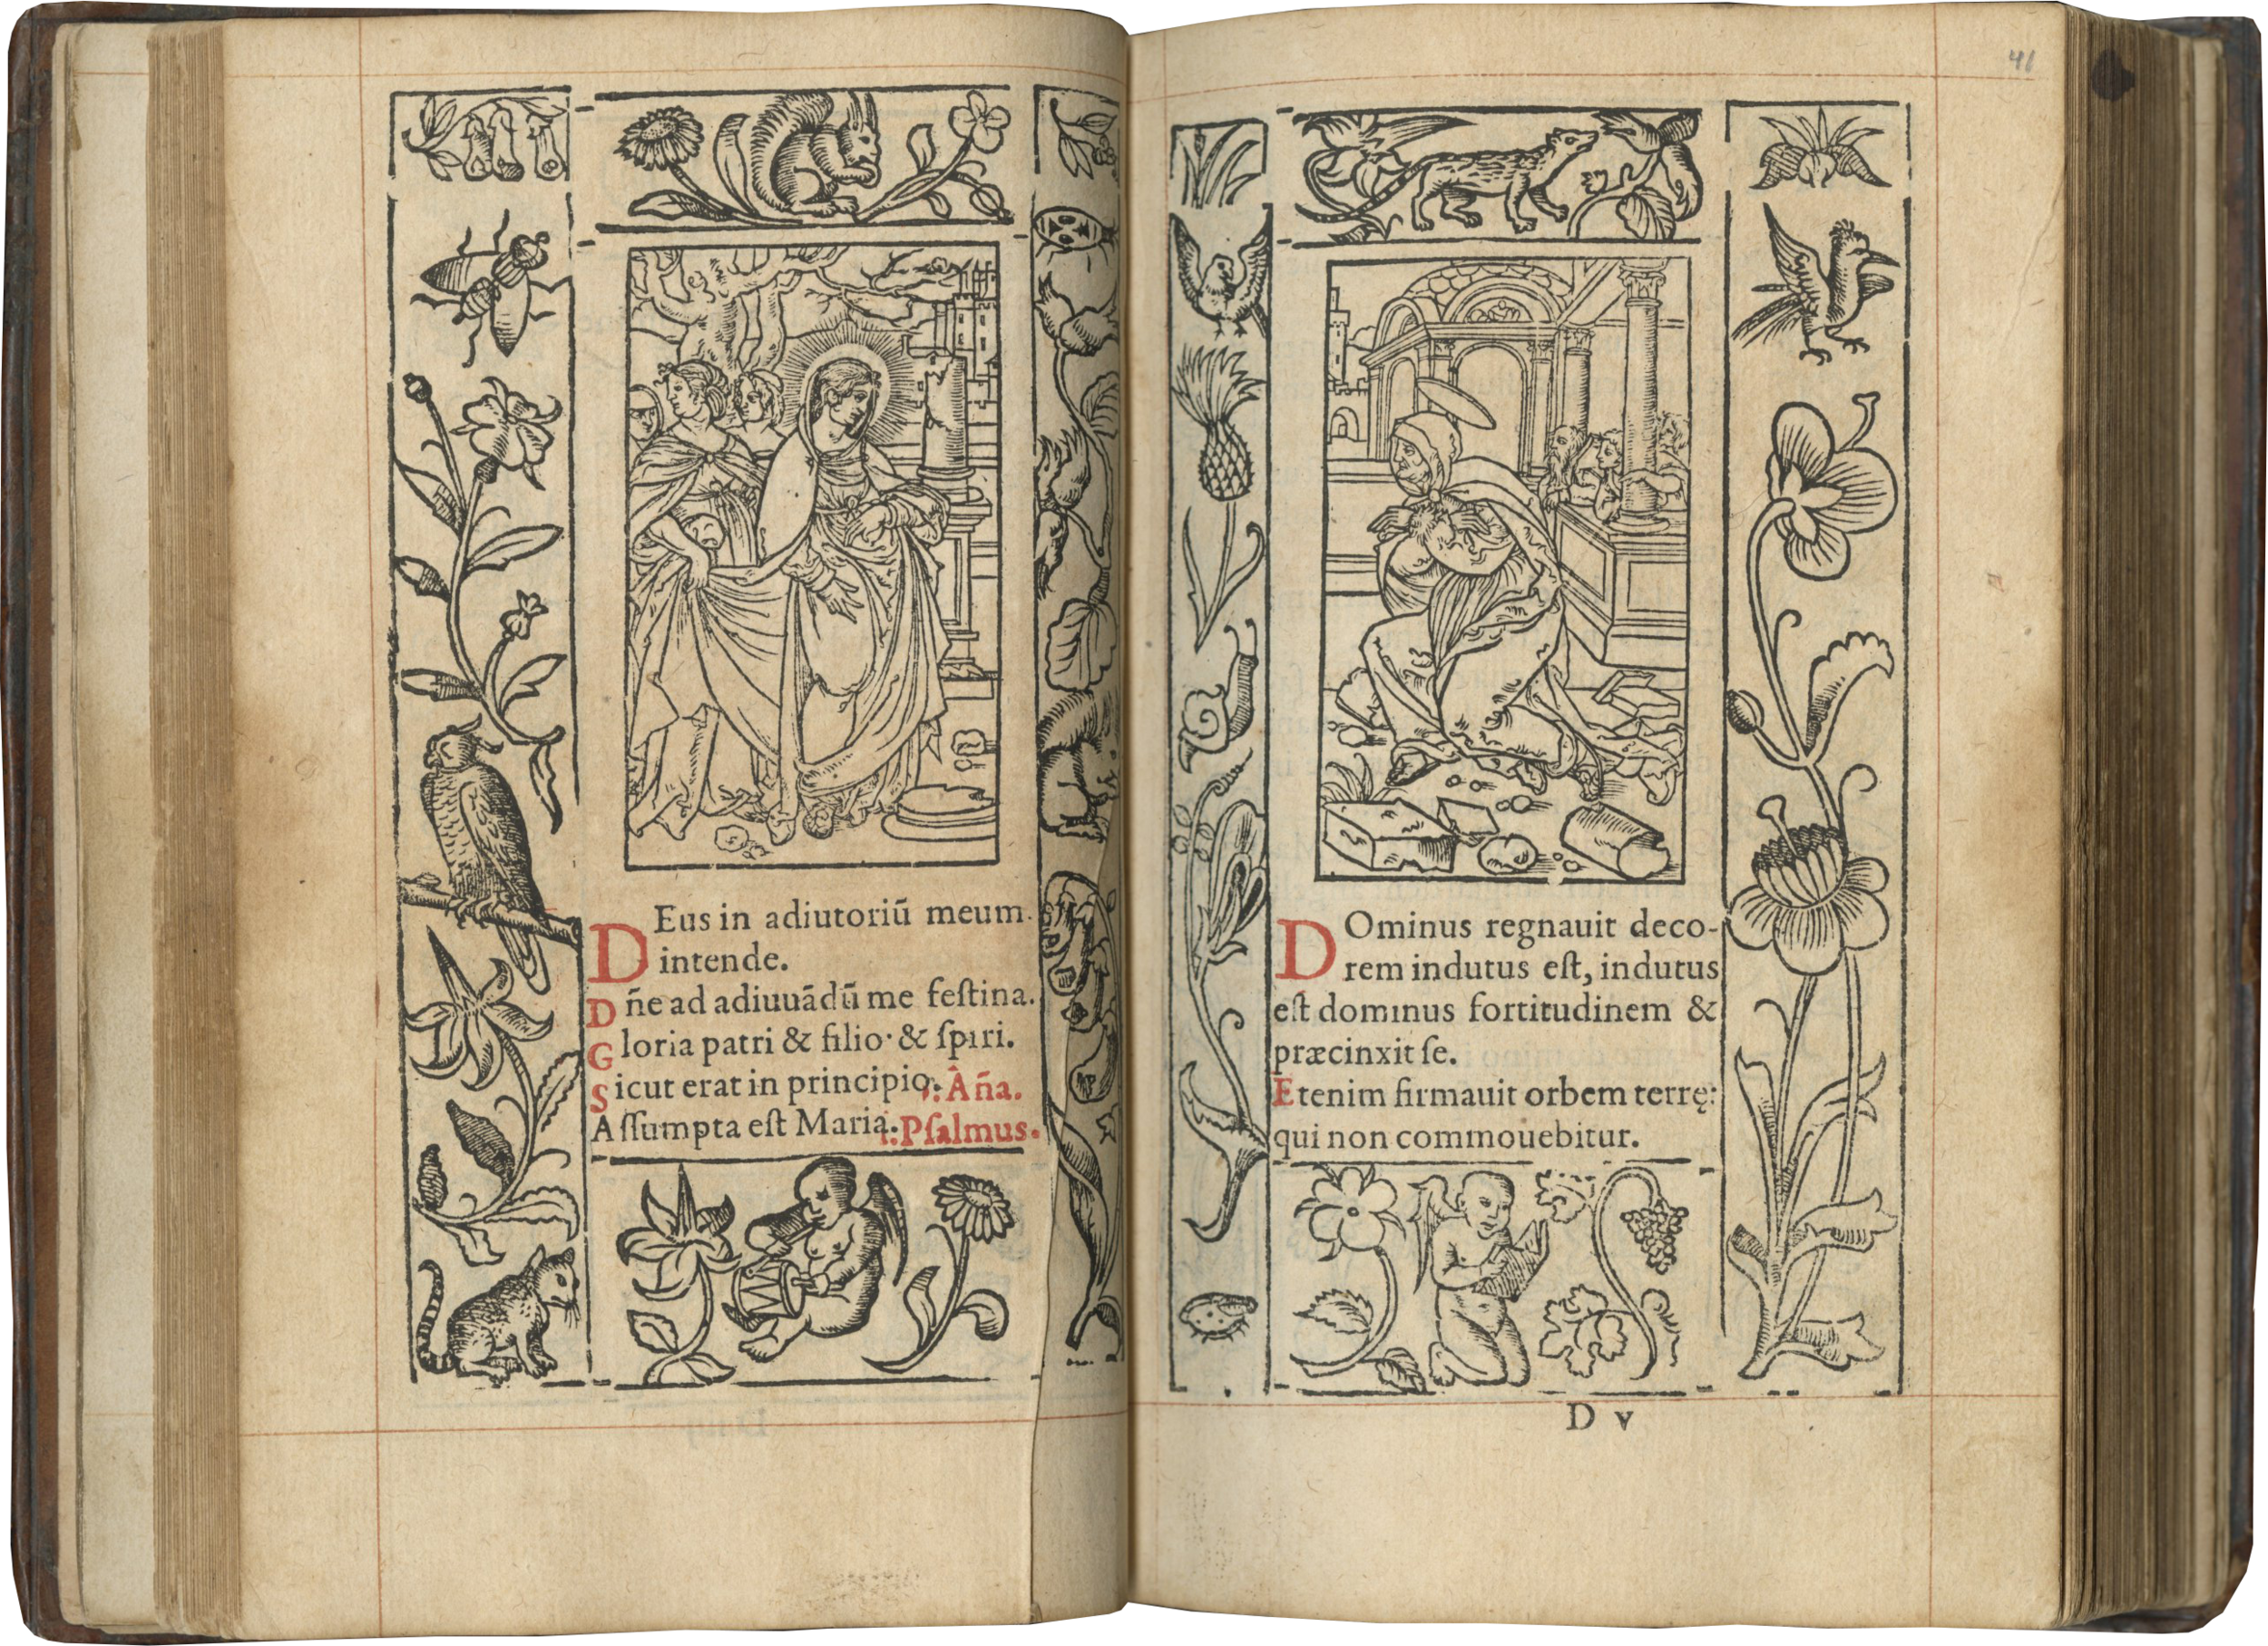 DEus in adiutoriū meum
intende.
Dñe ad adiuuādū me feſtina.
Gloria patri & filio & ſpiri.
Sicut erat in principio. Aña.
Aſſumpta eſt Maria. Pſalmus.
41
DOminus regnauit deco-
rem indutus eſt, indutus
eſt dominus fortitudinem &
præcinxit ſe.
Etenim firmauit orbem terrę:
qui non commouebitur.
D v